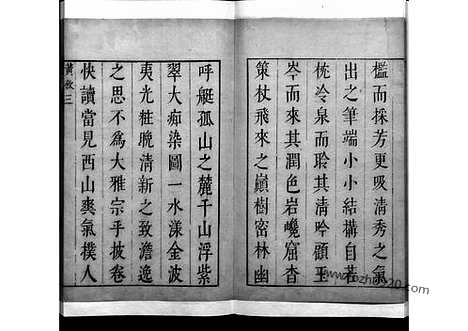 檻而採芳更吸清秀之氣
出之筆端小小結搆自若
枕冷泉而聆其清吟顧玉
岑而來其潤色岩巉窟杳
策杖飛來之巔樹密林幽
呼艇孤山之麓千山浮紫
翠大痴染圖一水漾金波
夷光粧晩清新之致澹逸
之思不爲大雅宗乎披卷
快讀當見西山爽氣樸人
黄敘三